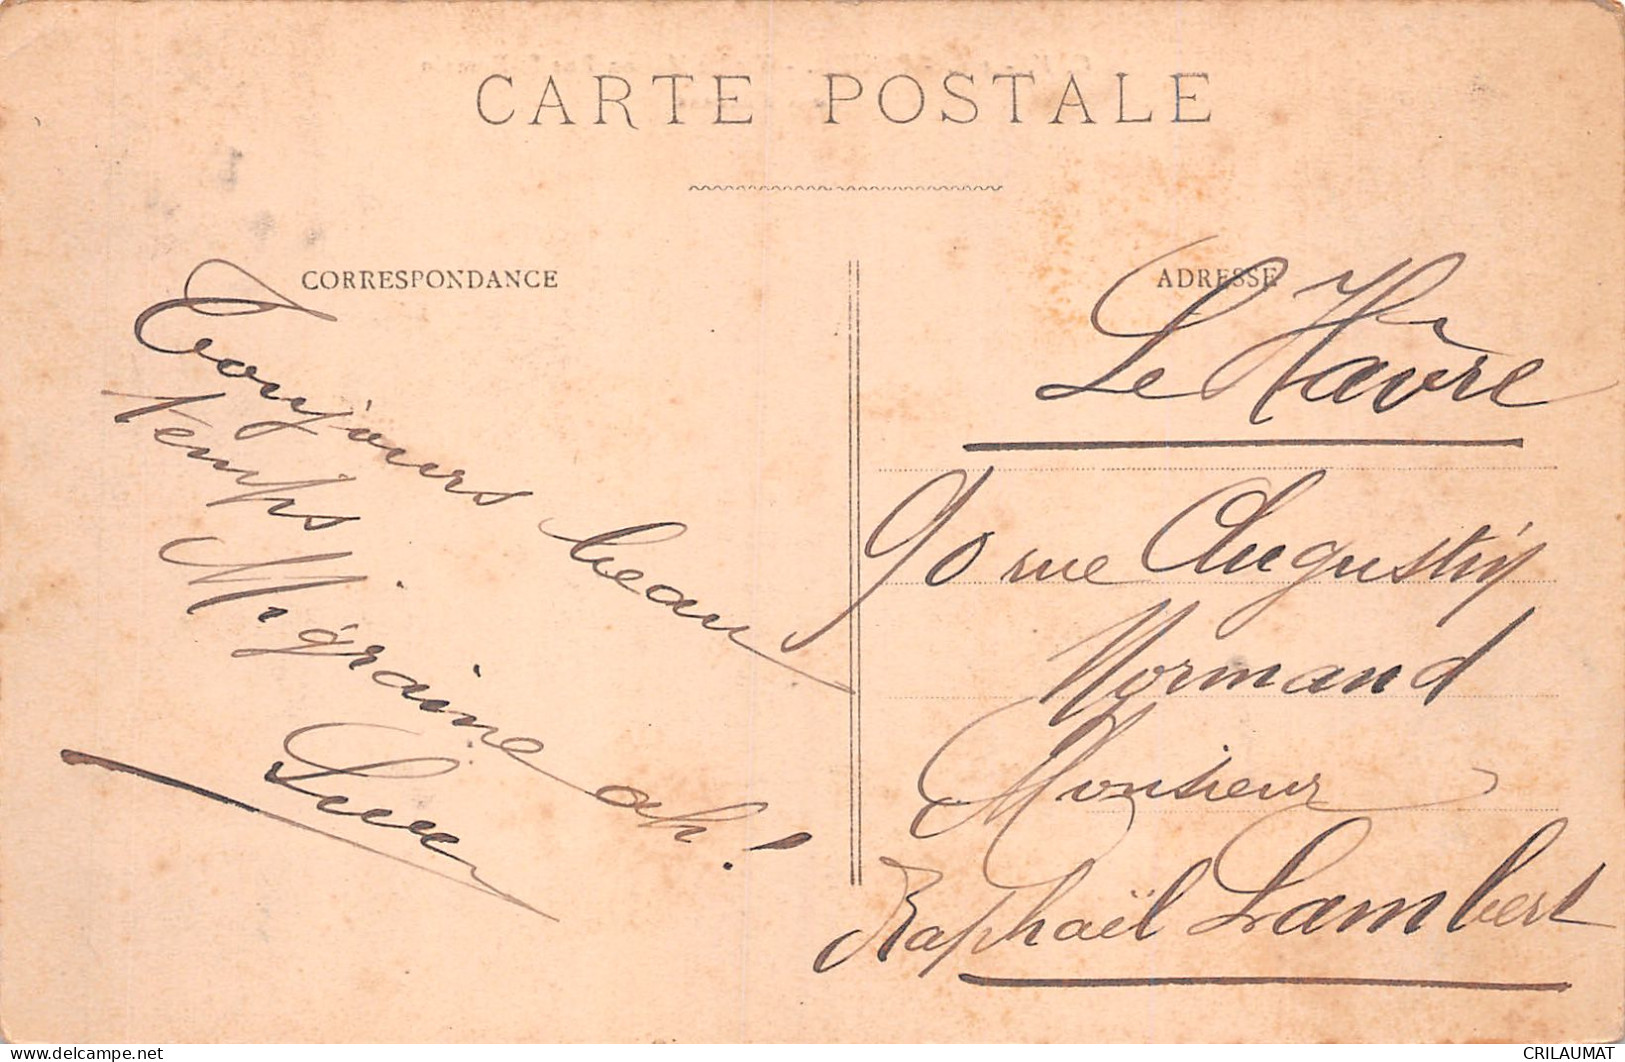 CARTE POSTALE
CORRESPONDANCE
Toujours beau
temps
Migraine ah!
ADRESSE
Le Havre
90 rue Augustin
Normand
Monsieur
Raphaël Lambert
CRILAUMAT